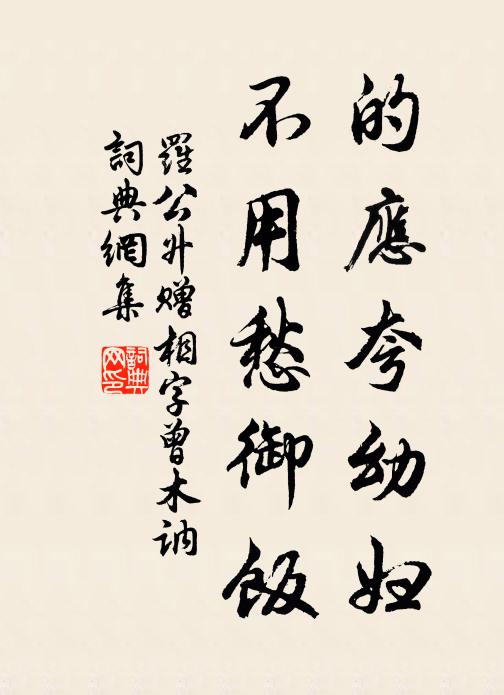 的應夸幼妇
不用愁御飯
羅公升贈相字曾木訥
詞典網集
詞典
网印